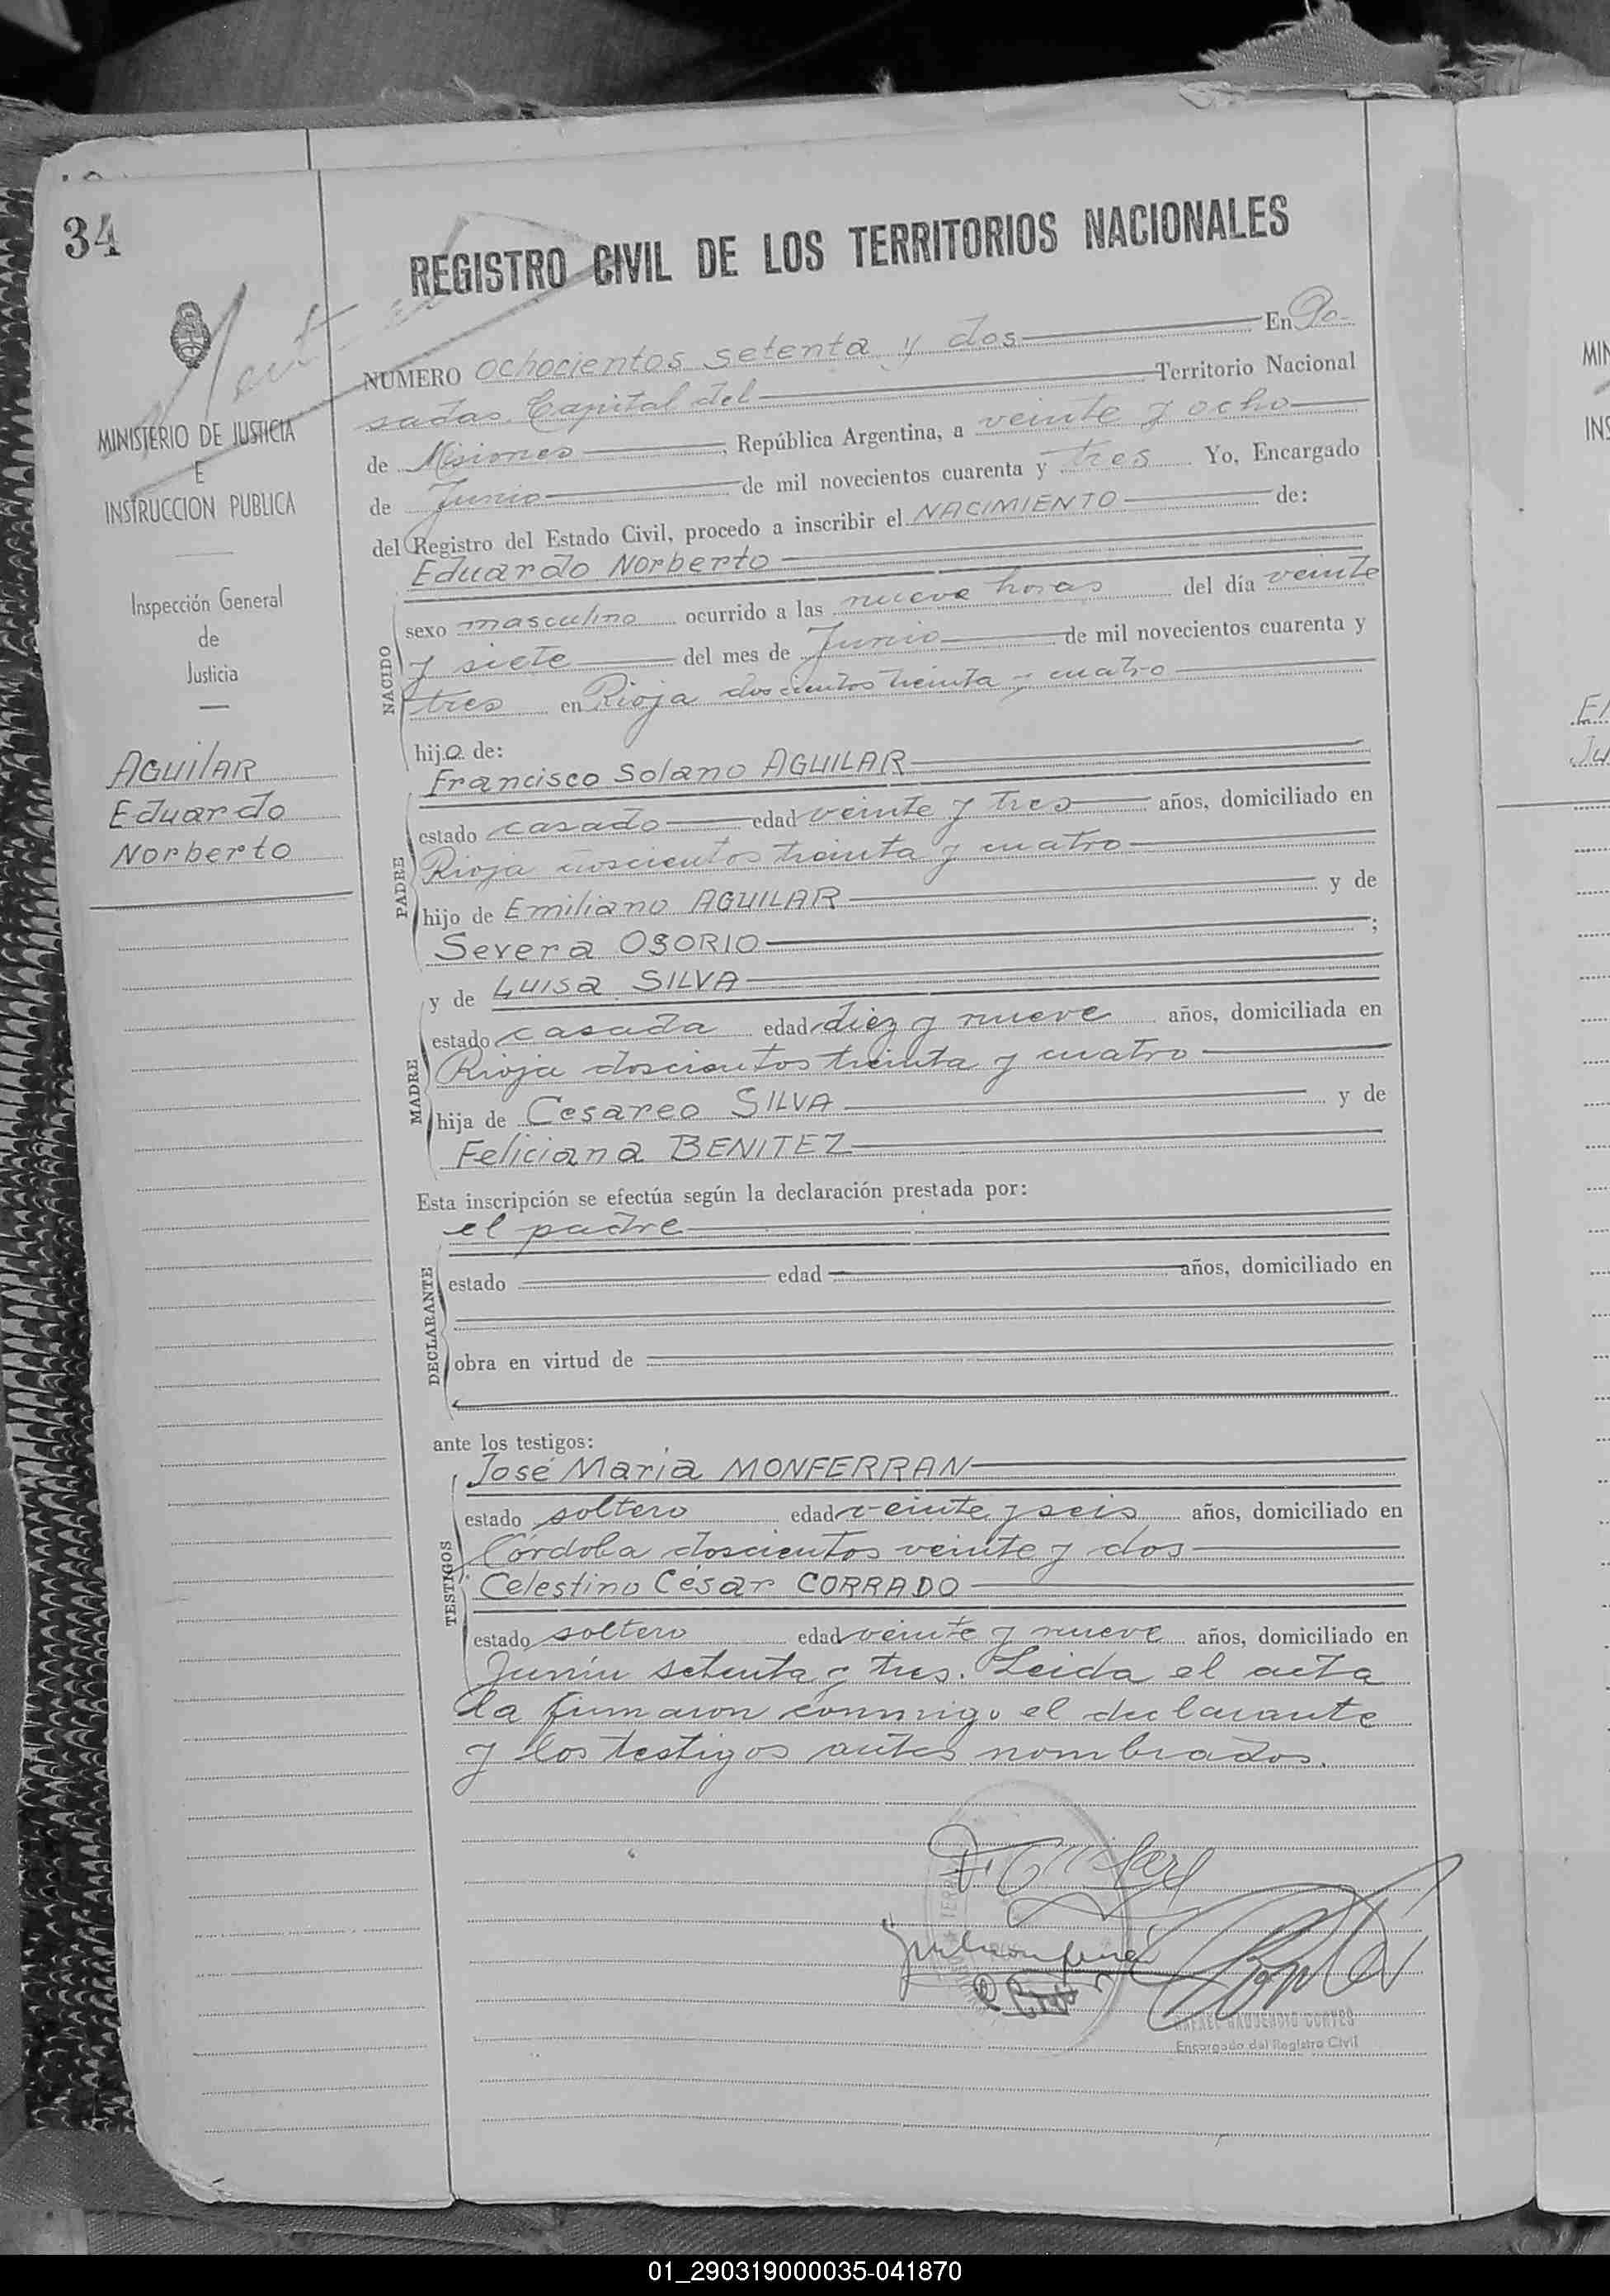 34
REGISTRO CIVIL DE LOS TERRITORIOS NACIONALES
MINISTERIO DE JUSTICIA
E
INSTRUCCION PUBLICA
Inspección General
de
Justicia
AGUILAR
Eduardo
Norberto
NUMERO ochocientos setenta y dos En Po-
sadas Capital del Territorio Nacional
de Misiones, República Argentina, a veinte y ocho
de Junio de mil novecientos cuarenta y tres Yo, Encargado
del Registro del Estado Civil, procedo a inscribir el NACIMIENTO de:
Eduardo Norberto
NACIDO
sexo masculino ocurrido a las nueve horas del día veinte
y siete del mes de Junio de mil novecientos cuarenta y
tres en Rioja doscientos treinta y cuatro
hijo de:
Francisco Solano AGUILAR
PADRE
estado casado edad veinte y tres años, domiciliado en
Rioja doscientos treinta y cuatro
hijo de Emiliano AGUILAR y de
Severa OSORIO;
y de Luisa SILVA
MADRE
estado casada edad diez y nueve años, domiciliada en
Rioja doscientos treinta y cuatro
hija de Cesareo SILVA y de
Feliciana BENITEZ
Esta inscripción se efectúa según la declaración prestada por:
el padre
DECLARANTE
estado edad años, domiciliado en
obra en virtud de
ante los testigos:
José María MONFERRAN
TESTIGOS
estado soltero edad veinte y seis años, domiciliado en
Córdoba doscientos veinte y dos
Celestino César CORRADO
estado soltero edad veinte y nueve años, domiciliado en
Junín setenta y tres. Leida el acta
la firmaron conmigo el declarante
y los testigos antes nombrados.
Encargado del Registro Civil
01_290319000035-041870